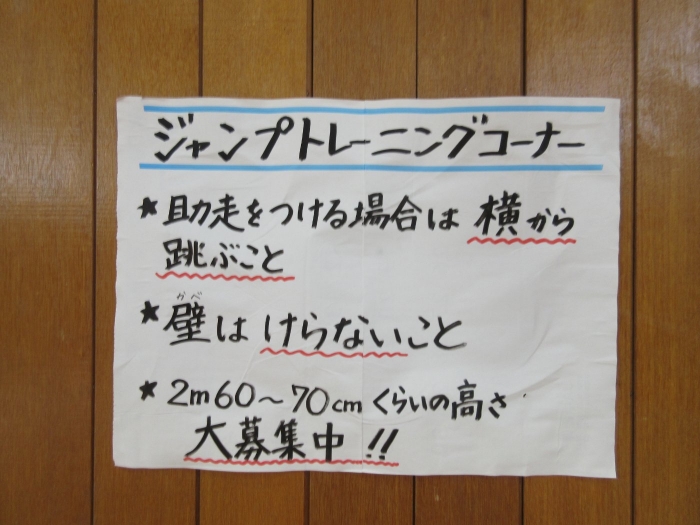 ジャンプトレーニングコーナー
★助走をつける場合は 横から
跳ぶこと
かべ
★壁は けらないこと
★2m60〜70cmくらいの高さ
大募集中!!